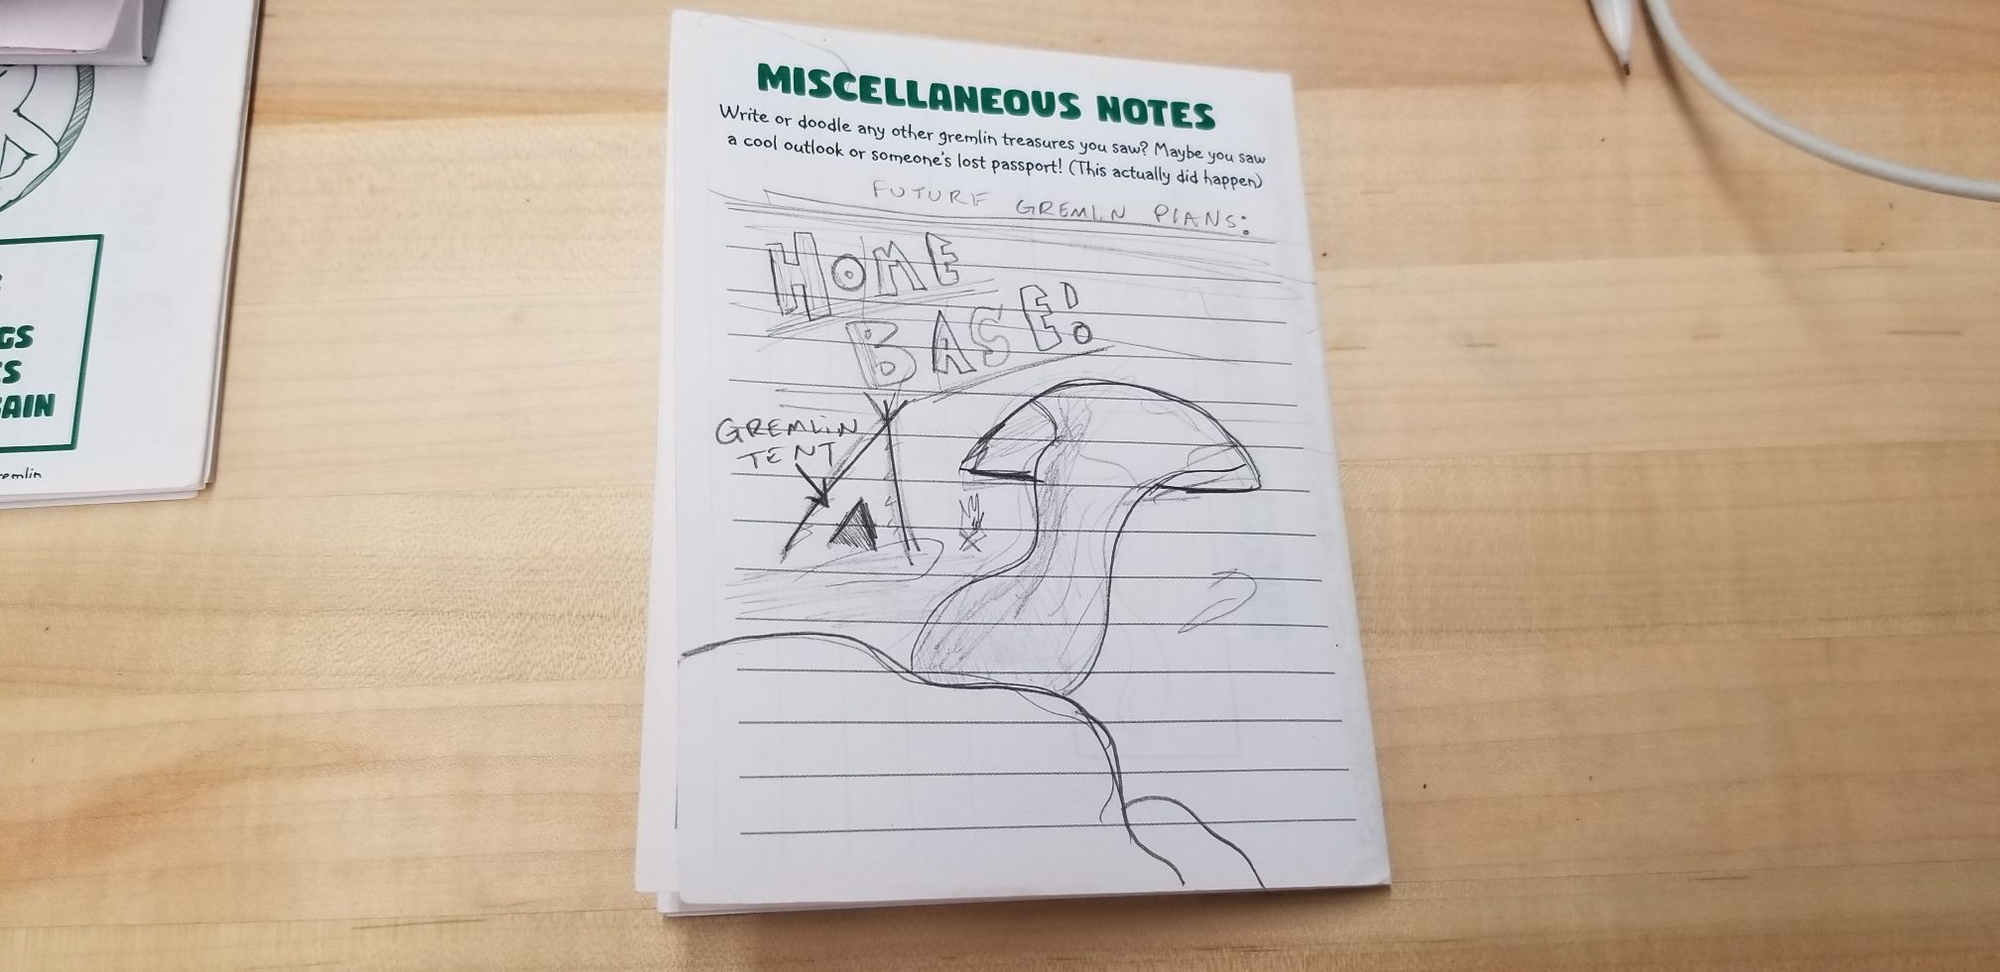 MISCELLANEOUS NOTES
Write or doodle any other gremlin treasures you saw? Maybe you saw
a cool outlook or someone's lost passport! (This actually did happen)
FUTURE GREMLIN PLANS:
HOME
BASE!
GREMLIN
TENT
GS
S
AIN
emlin